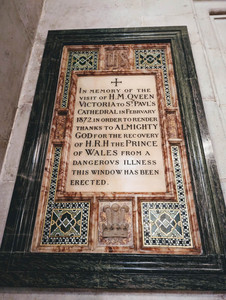 IN MEMORY OF THE
VISIT OF H.M. QVEEN
VICTORIA TO ST PAVL'S
CATHEDRAL IN FEBRVARY
1872 IN ORDER TO RENDER
THANKS TO ALMIGHTY
GOD FOR THE RECOVERY
OF H.R.H THE PRINCE
OF WALES FROM A
DANGEROVS ILLNESS
THIS WINDOW HAS BEEN
ERECTED.